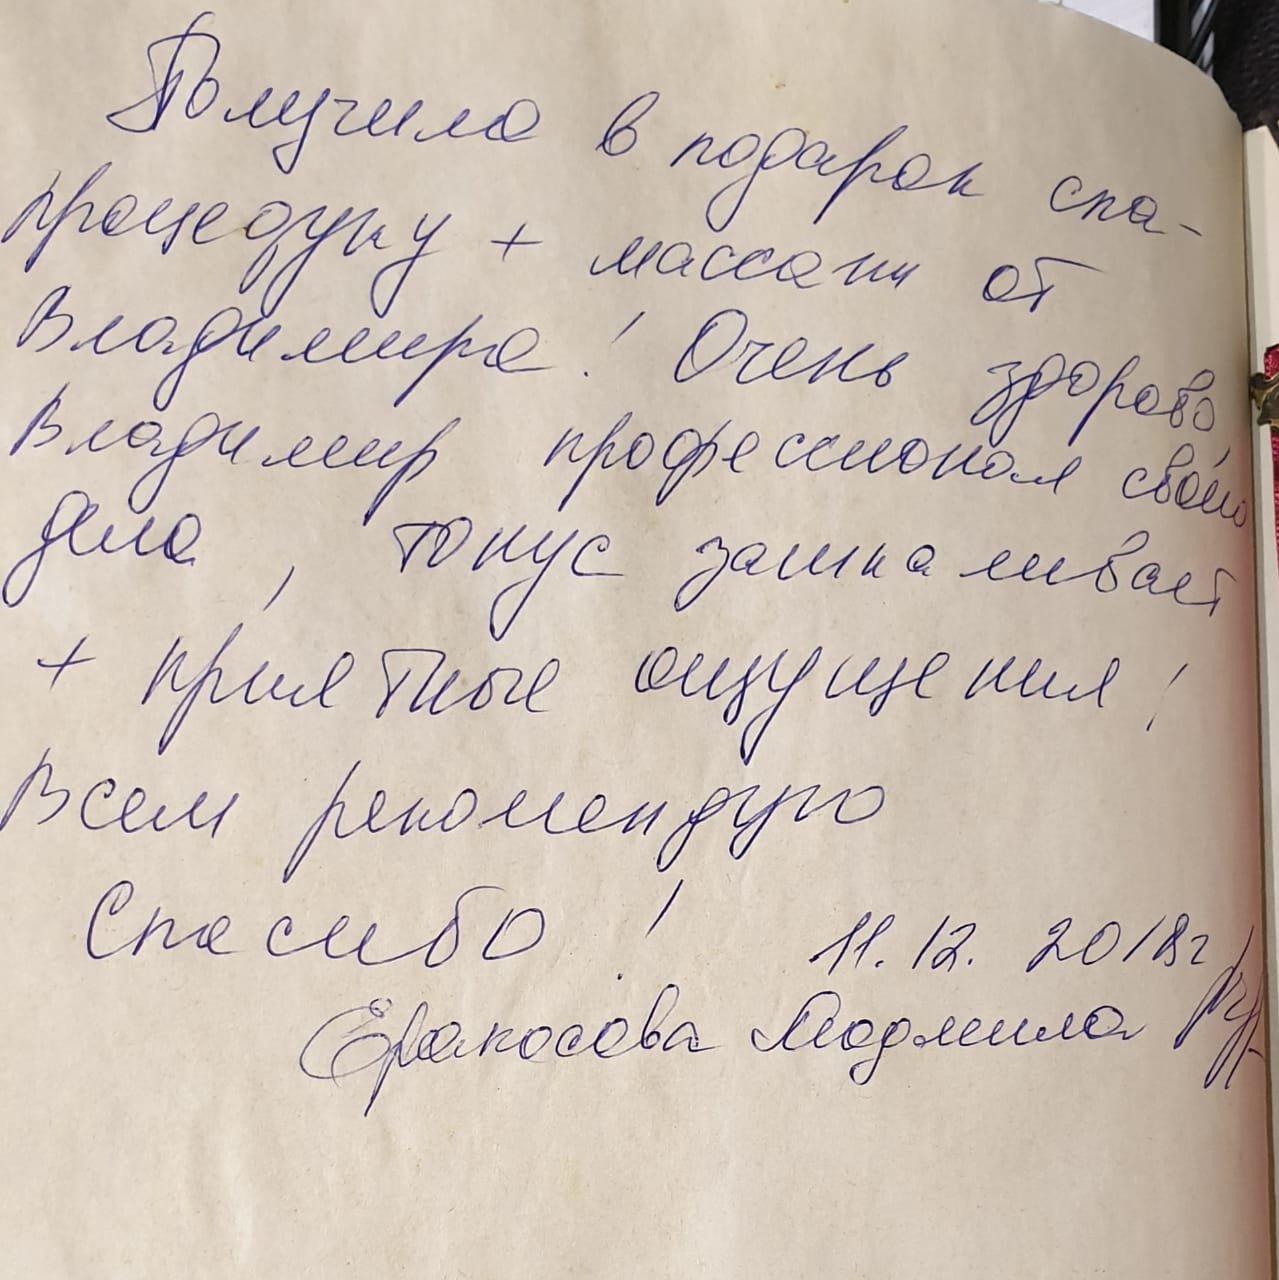 Получила в подарок спа-
процедуру + массаж от
Владимира! Очень здорово,
Владимир профессионал своего
дела, тонус зашкаливает
+ приятные ощущения!
Всем рекомендую
Спасибо! 11.12.2018г
Еракосова Людмила